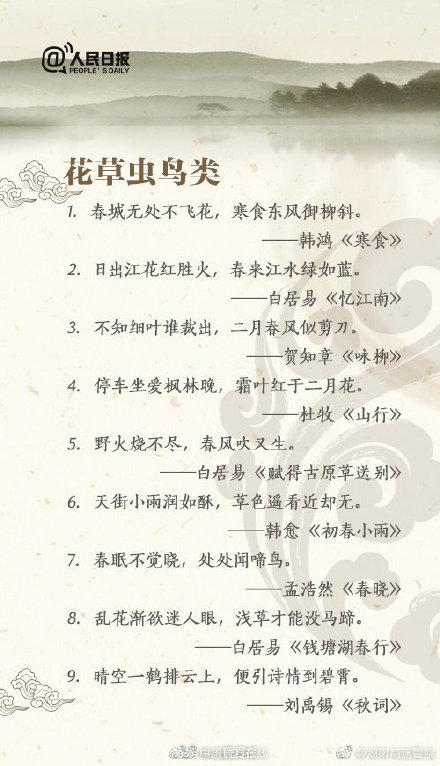 @人民日报
PEOPLE'S DAILY
花草虫鸟类
1. 春城无处不飞花，寒食东风御柳斜。
——韩鸿《寒食》
2. 日出江花红胜火，春来江水绿如蓝。
——白居易《忆江南》
3. 不知细叶谁裁出，二月春风似剪刀。
——贺知章《咏柳》
4. 停车坐爱枫林晚，霜叶红于二月花。
——杜牧《山行》
5. 野火烧不尽，春风吹又生。
——白居易《赋得古原草送别》
6. 天街小雨润如酥，草色遥看近却无。
——韩愈《初春小雨》
7. 春眠不觉晓，处处闻啼鸟。
——孟浩然《春晓》
8. 乱花渐欲迷人眼，浅草才能没马蹄。
——白居易《钱塘湖春行》
9. 晴空一鹤排云上，便引诗情到碧霄。
——刘禹锡《秋词》
@湖南高速警察